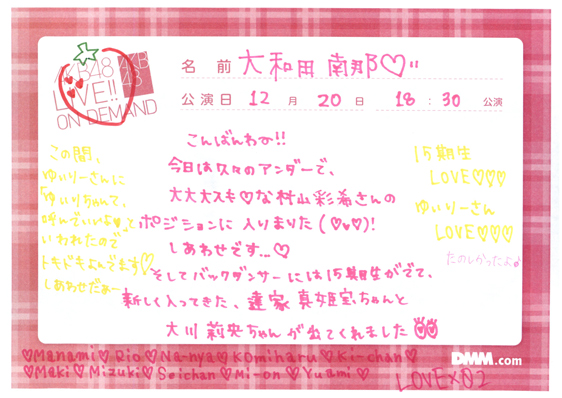 AKB48
LIVE!!
ON DEMAND
AKB
48
名前 大和田 南那♡
公演日 12月20日 18:30公演
こんばんわ!!
今日は久々のアンダーで、
大大大スキ♡な村山彩希さんの
ポジションに入りまりた(♡♡)!
しあわせです…♡
そしてバックダンサーには15期生がでて、
新しく入ってきた、達家 真姫宝ちゃんと
大川 莉央ちゃんが出てくれました
この間、
ゆいりーさんに
「ゆいりちゃんて、
呼んでいいよ♥」と
いわれたので
トキドキよんでます♡
しあわせだぁー
15期生
LOVE♡♡♡
ゆいりーさん
LOVE♡♡♡
たのしかったよ♪
DMM.com
♡Manami♡Rio♡Na-nya♡Komiharu♡Ki-chan♡
♡Maki♡Mizuki♡Seichan♡Mi-on♡Yuami♡
LOVE×02